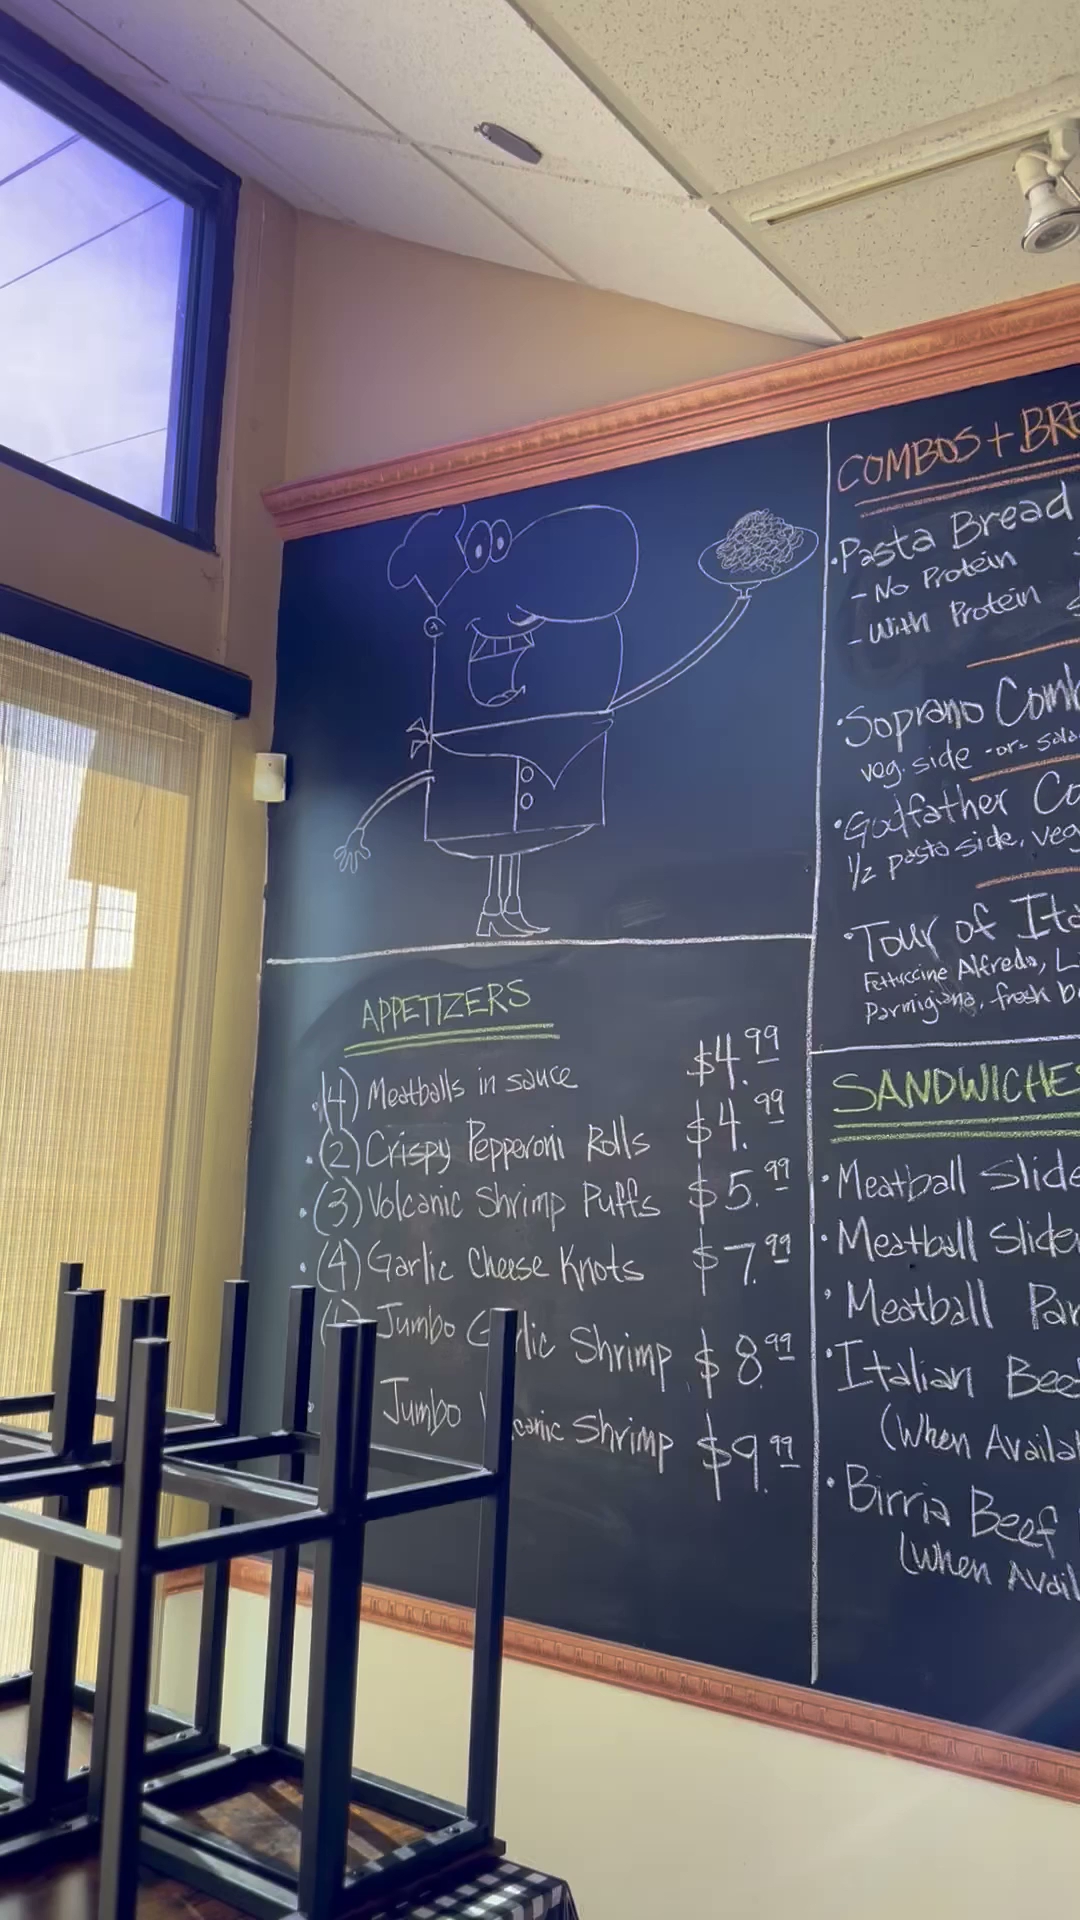 APPETIZERS
(4) Meatballs in sauce $4.99
(2) Crispy Pepperoni Rolls $4.99
(3) Volcanic Shrimp Puffs $5.99
(4) Garlic Cheese Knots $7.99
Jumbo Shrimp $8.99
Jumbo Shrimp $9.99
COMBOS +
Pasta Bread
- No Protein
- With Protein
Soprano
veg. side -or-
Godfather
1/2 pasta side,
Tour of
Fettuccine Alfredo,
Parmigiana, fresh
SANDWICHES
Meatball
Meatball
Meatball
Italian
(When
Birria Beef
(When